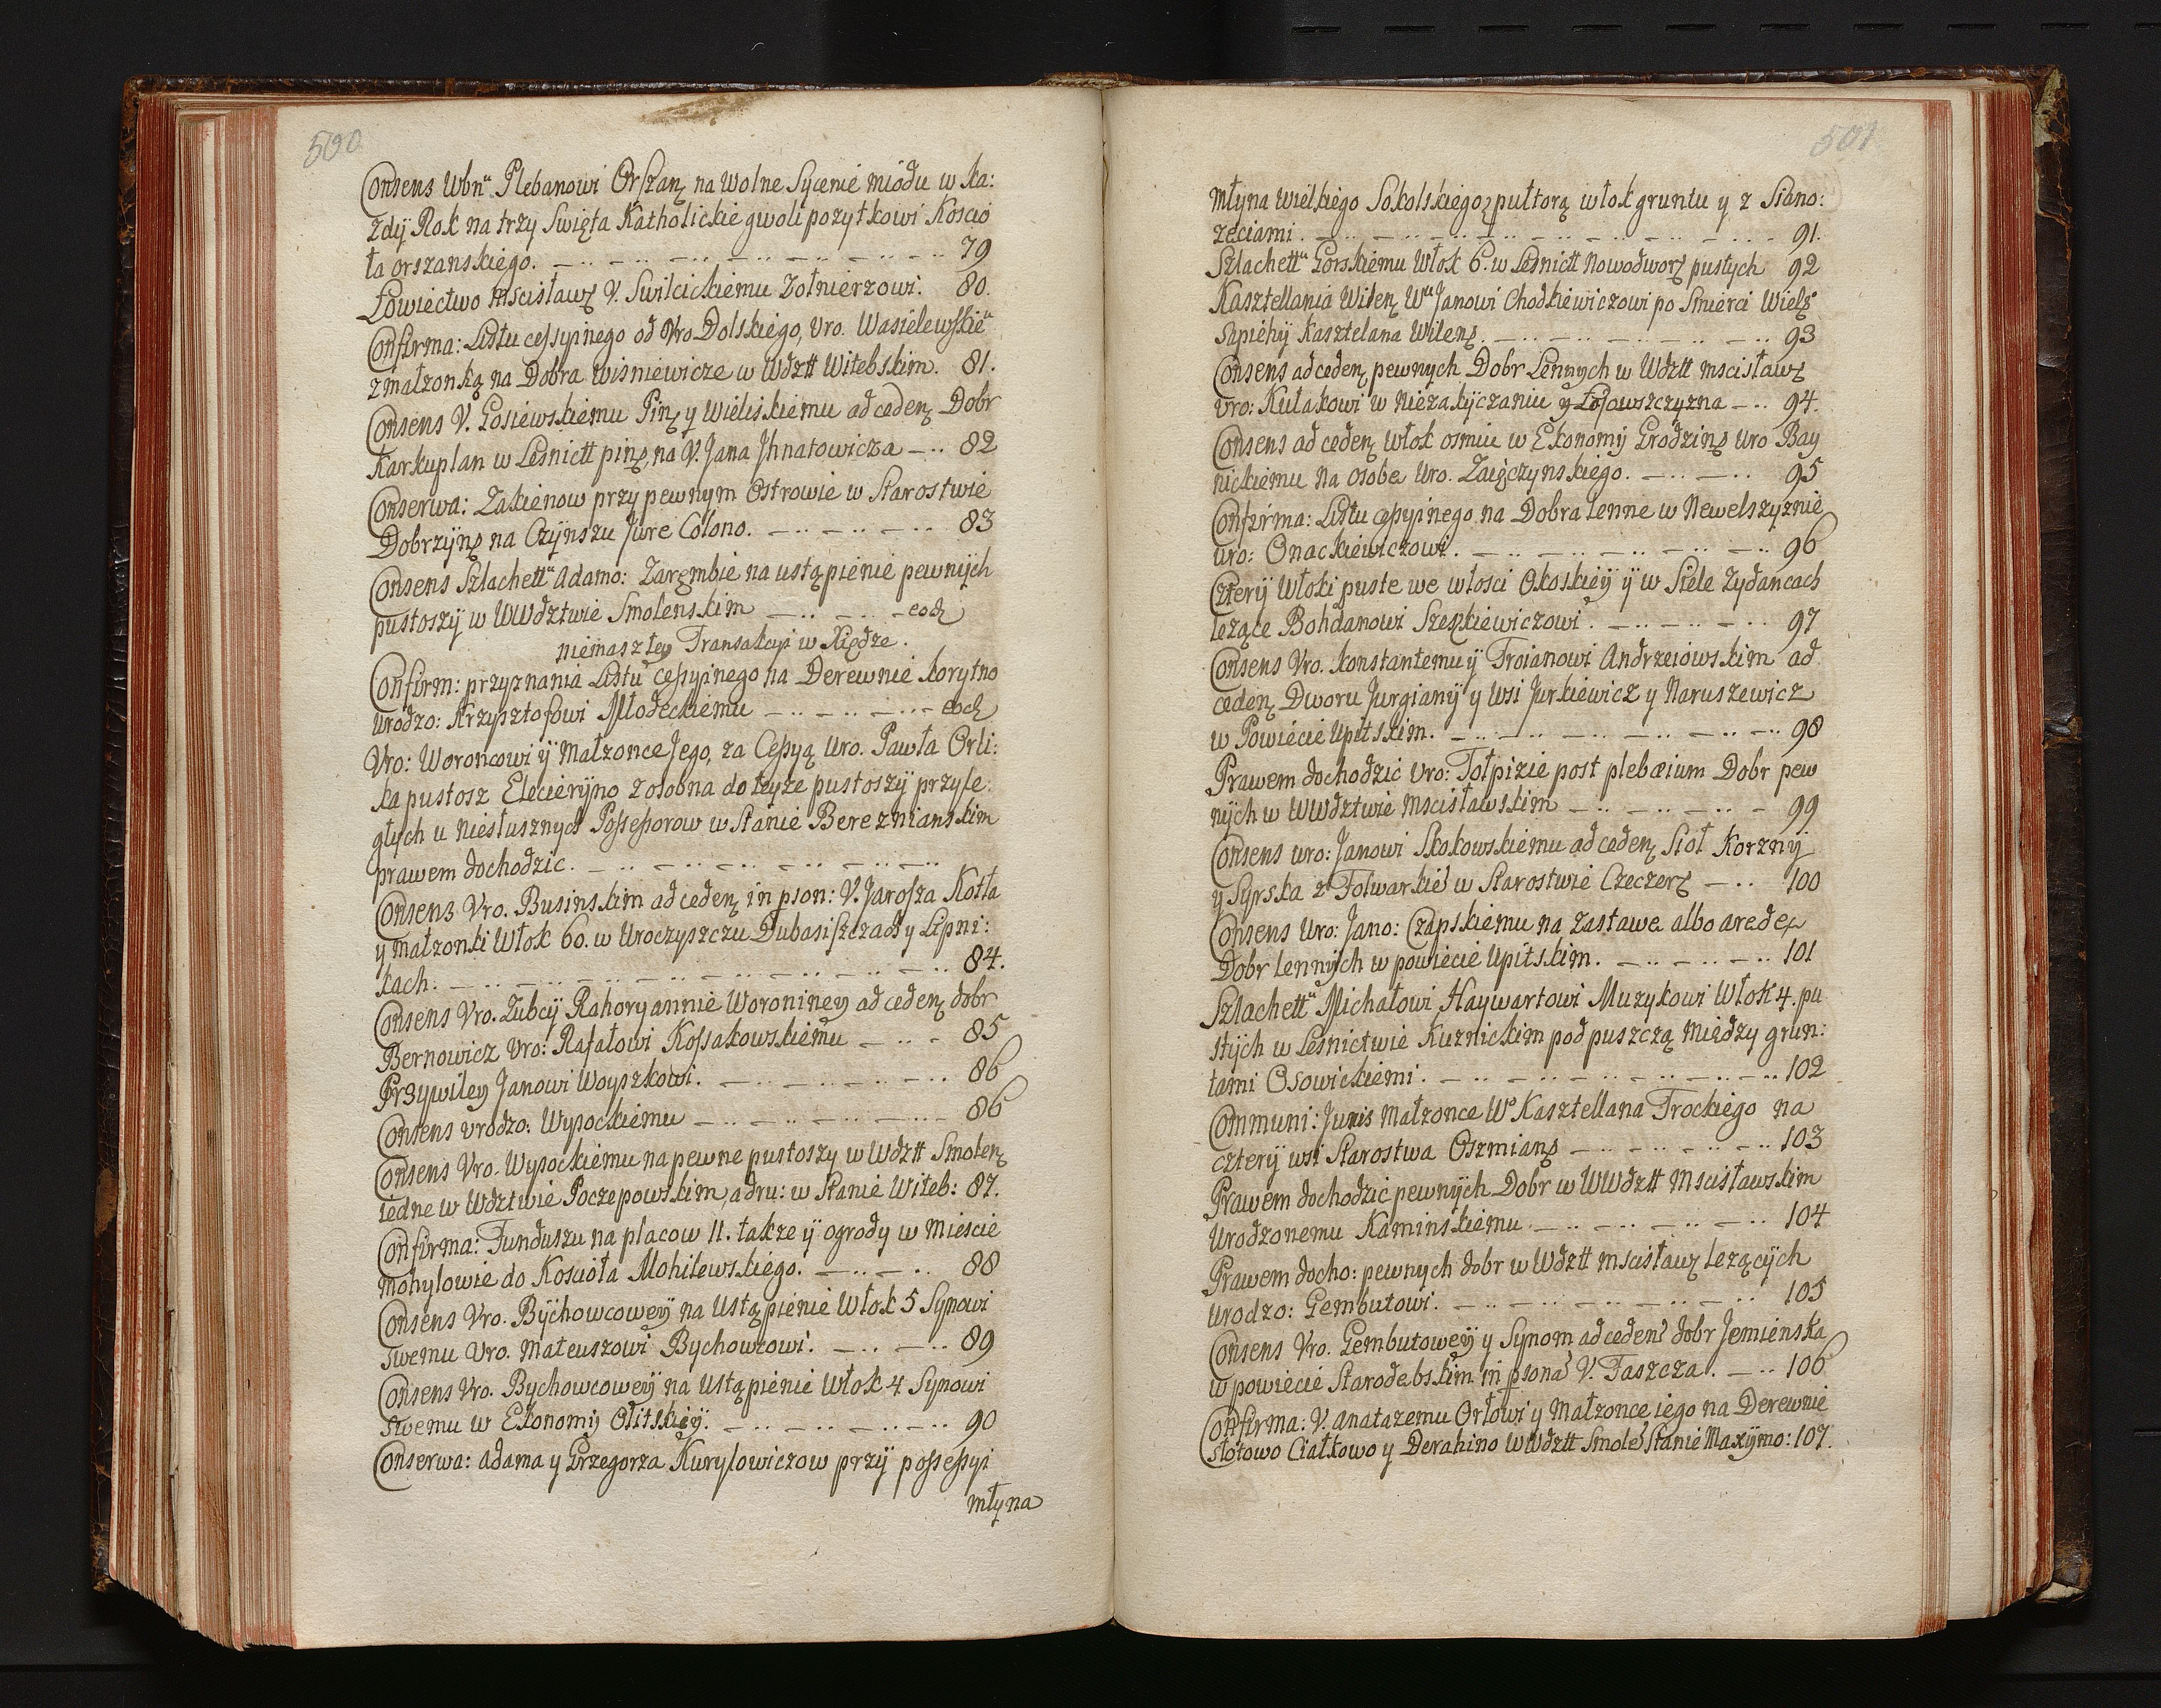 500
Consens Wbnu Plebanowi Orszanȝ na Wolne Sycenie miodu w ka:
zdÿ Rok na trzy Swięta Katholickie gwoli pozytkowi Koscio
ła orszanskiego. 79
Łowiectwo Mscisławȝ V. Swilcickiemu Zołnierzowi. 80.
Confirma: Listu cessyinego od Vro Dolskiego, Vro. Wasielewskieu
z małzonką na Dobra Wisniewicze w Wdztt Witebskim. 81.
Consens V. Gosiewskiemu Pinȝ y Wieliskiemu ad cedenȝ Dobr
Karkuplan w Lesnictt pinȝ, na V. Jana Jhnatowicza 82
Conserwa: Zakienow przy pewnym Ostrowie w Starostwie
Dobrzÿnȝ na Czÿnszu Jure Colono. 83
Consens Szlachettu Adamo: Zarembie na ustąpienie pewnÿch
pustoszÿ w WWdztwie Smolenskim eodȝ
niemasz tey Transakcÿi w Xiędze.
Confirm: przyznania Listu cessyinego na Derewnie korytno
urodzo: Krzysztofowi Młodeckiemu eodȝ
Vro: Woroncowi ÿ Małzonce Jego, za Cessyą Uro. Pawła Orli:
ka pustosz Elecierÿno z osobna do teyze pustoszÿ przyle:
głych u niesłusznych Possessorow w Stanie Bereznianskim
prawem dochodzic.
Consens Vro. Businskim ad cedenȝ in pson: V. Jarosza Kotła
y małzonki Włok 60. w Uroczyszczu Dubasiszczach y Lipni:
kach. 84.
Consens Vro. Zubcÿ Rahoryannie Woroniney ad cedenȝ dobr
Bernowicz Vro: Rafałowi Kossakowskiemu 85
Przywiley Janowi Woyszkowi. 86
Consens urodzo: Wysockiemu 86
Consens Vro. Wysockiemu na pewne pustoszy w Wdztt Smolenȝ
iedne w Wdztwie Poczepowskim, a dru: w Stanie Witeb: 87.
Confirma: Funduszu na placow 11. takze ÿ ogrody w Miescie
Mohylowie do Koscioła Mohilewskiego. 88
Consens Vro. Bÿchowcoweÿ na Ustąpienie Włok 5 Synowi
swemu Vro. Mateuszowi Bychowcowi. 89
Consens Vro. Bychowcoweÿ na Ustąpienie Włok 4 Synowi
swemu w Ekonomiÿ Olitskieÿ. 90
Conserwa: Adama y Grzegorza Kuryłowiczow przÿ possessyi
młyna
501
młyna Wielkiego Sokolskiego z pułtorą włok gruntu y z Siano:
zęciami. 91.
Szlachettu Gorskiemu Włok 6. w Lesnictt Nowodworȝ pustych 92
Kasztellania Wilenȝ Wu Janowi Chodkiewiczowi po Smierci Wielȝo
Sapiehÿ Kasztelana Wilenȝ. 93
Consens ad cedenȝ pewnych Dobr Lennych w Wdztt mscisławȝ
Vro: Kułakowi w Niezakÿczaniu y Łosowszczyzna 94.
Consens ad cedenȝ Włok osmiu w Ekonomÿ Grodzinȝ Uro Bay
nickiemu na osobe Uro. Zaięczynskiego. 95
Confirma: Listu cessyinego na Dobra lenne w Newelszyznie
uro: Onackiewiczowi. 96
Czterÿ Włoki puste we włosci Okoskieÿ ÿ w Siele Zydancach
lezące Bohdanowi Szeszkiewiczowi. 97
Consens Vro. konstantemu ÿ Troianowi Andrzeiowskim ad
cedenȝ Dworu Jurgianÿ y Wsi Jurkiewicz y Naruszewicz
w Powiecie Upitskim. 98
Prawem dochodzic Vro: Tołpizie post plebæium Dobr pew
nÿch w WWdztwie Mscisławskim 99
Consens uro: Janowi Skokowskiemu ad cedenȝ Sioł Korznÿ
y Syrska z Folwarkie w Starostwie Czeczerȝ 100
Consens Uro: Jano: Czapskiemu na zastawe albo arede
Dobr lennÿch w powiecie Upitskim. 101
Szlachettu Michałowi Haywartowi Muzykowi Włok 4. pu
stÿch w Lesnictwie Kuznickim pod puszczą między grun:
tami Osowickiemi. 102
Communi: Juris małzonce Wo Kasztellana Trockiego na
czterÿ wsi Starostwa Oszmianȝ 103
Prawem dochodzic pewnÿch Dobr w WWdztt Mscisławskim
Urodzonemu Kaminskiemu 104
Prawem docho: pewnych dobr w Wdztt mscisławȝ lezącÿch
Urodzo: Gembutowi. 105
Consens Vro. Gembutoweÿ y Synom ad ceden dobr Jemienska
w powiecie Starodebskim in psona V. Faszcza. 106
Confirma: V. Anatazemu Orłowi y Małzonce iego na Derewnie
słotowo Ciałkowo y Derahino w Wdztt Smole Stanie Maxÿmo: 107.